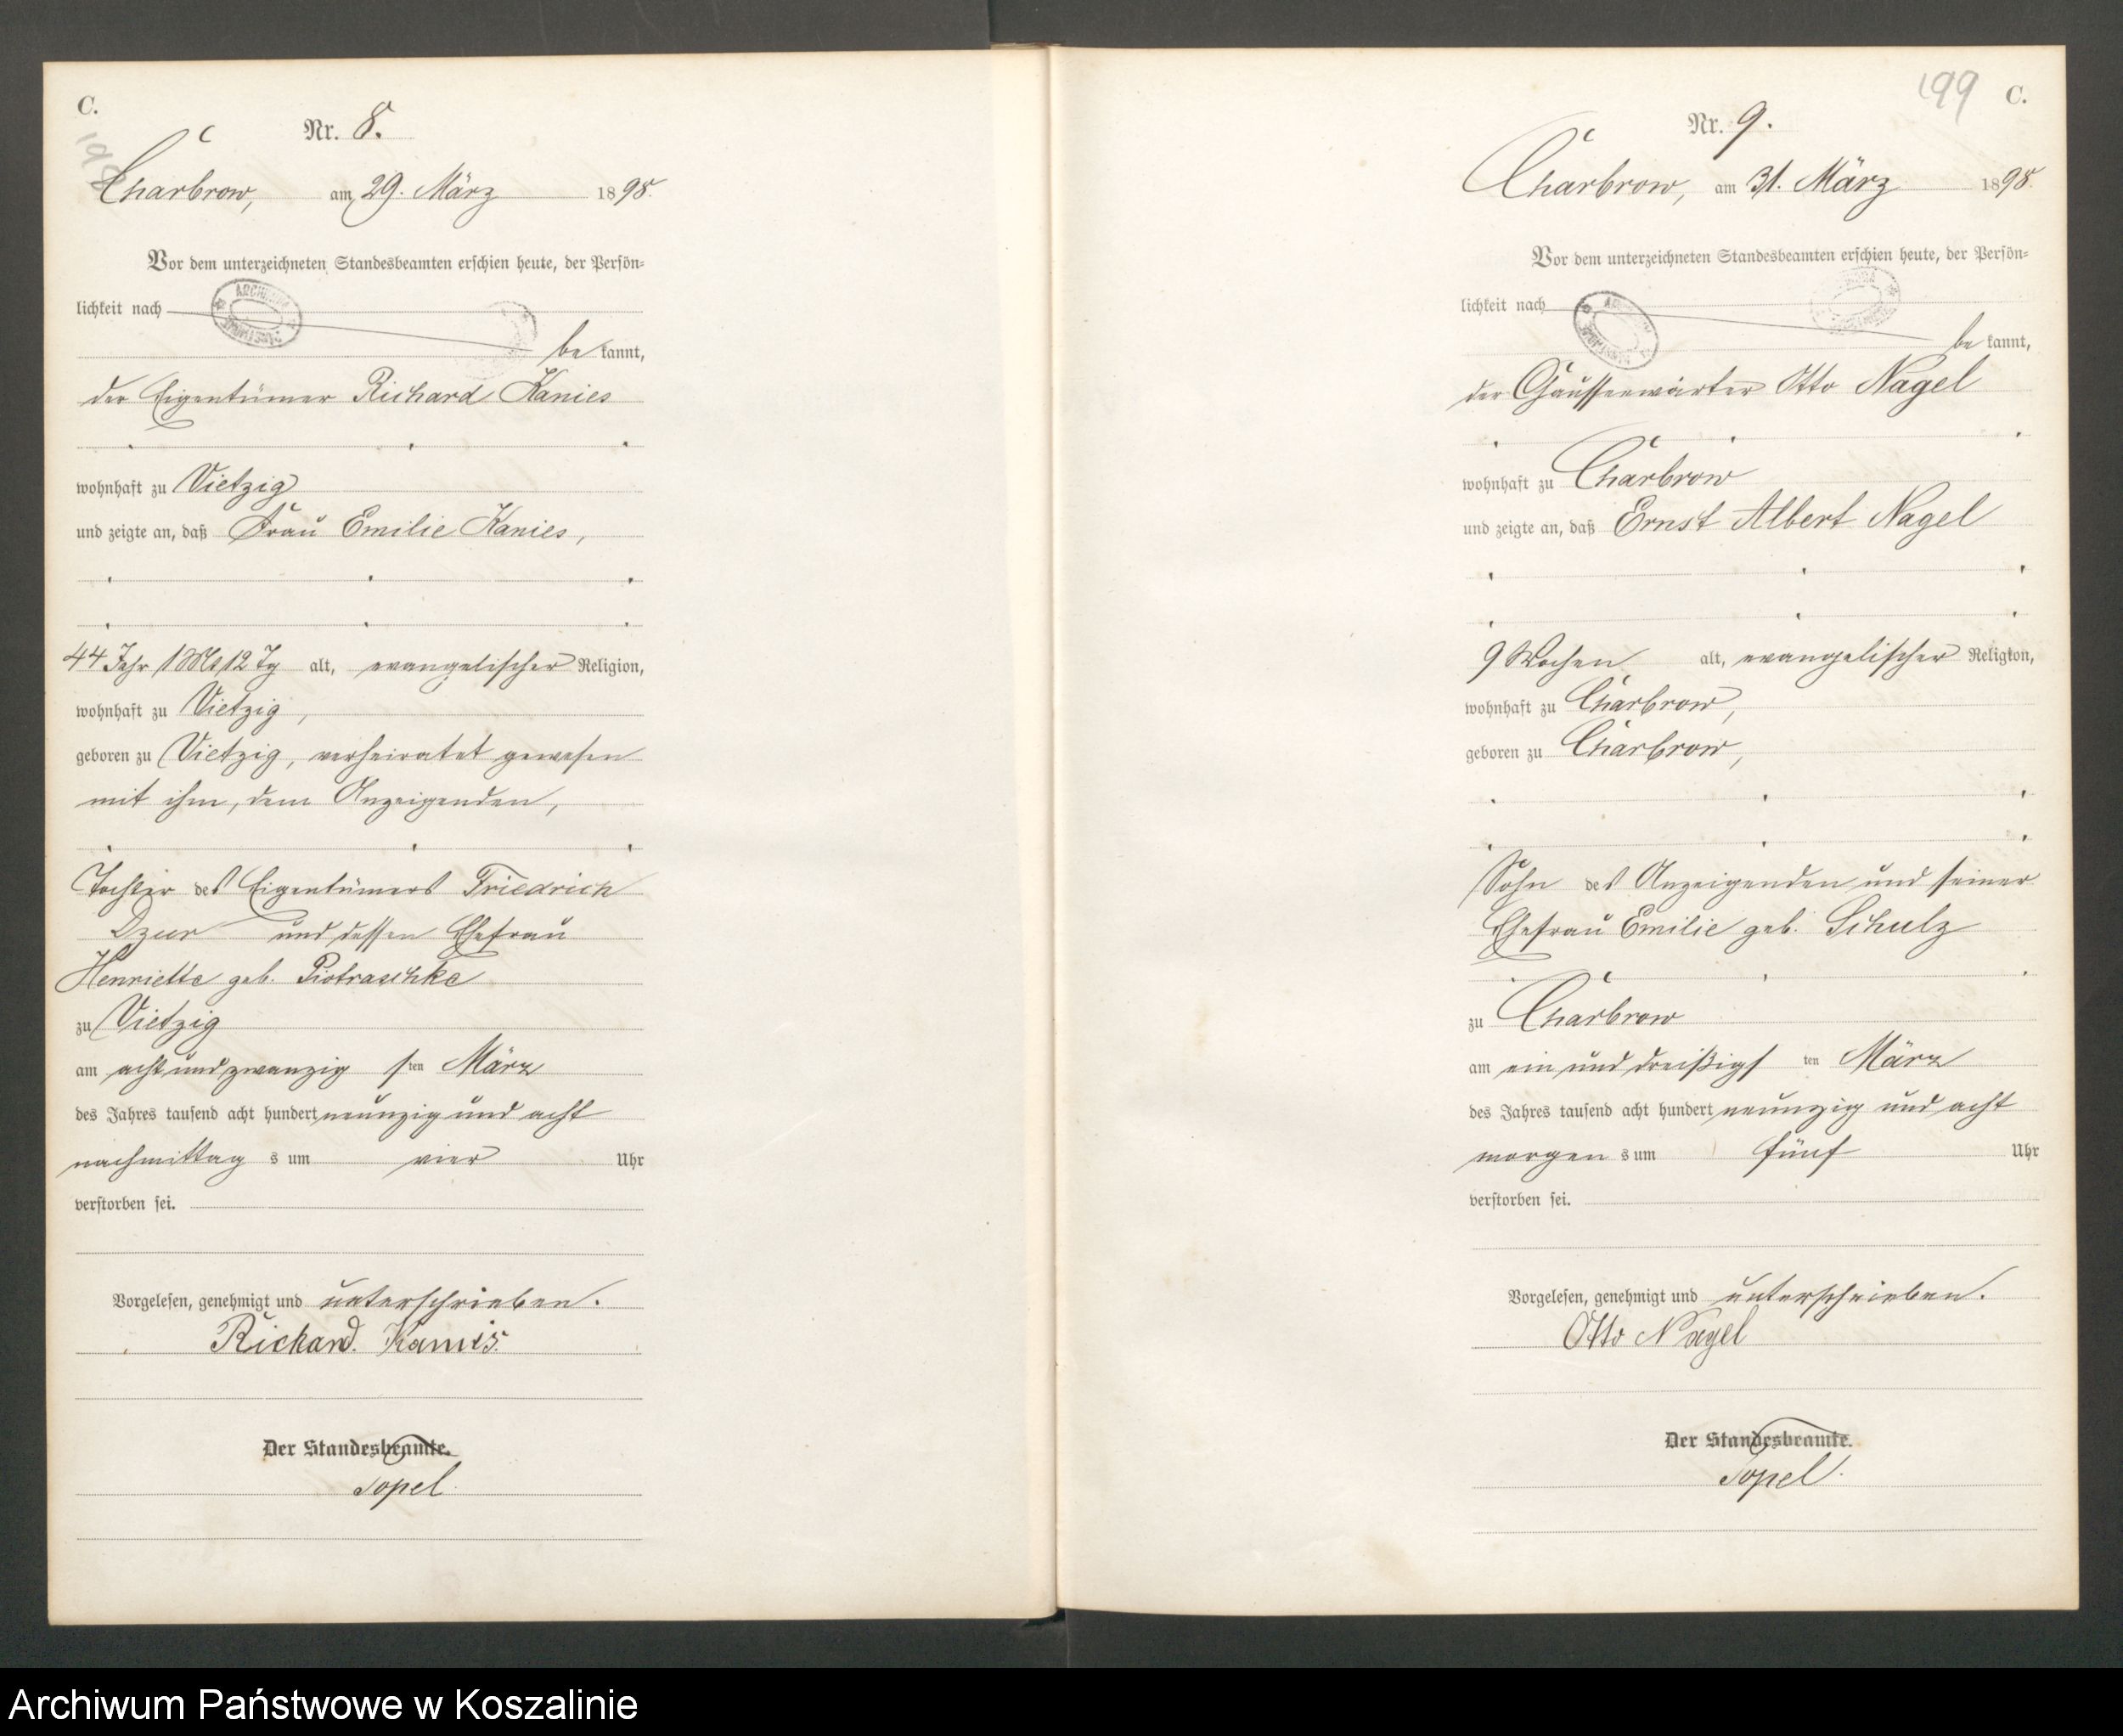 C.
198
Nr. 8.
Charbrow, am 29. März 1898.
Vor dem unterzeichneten Standesbeamten erschien heute, der Persön-
lichkeit nach
be kannt,
der Eigentümer Richard Kanies
wohnhaft zu Vietzig
und zeigte an, daß Frau Emilie Kanies,
44 Jahr 1 Mt 12 Tg alt, evangelischer Religion,
wohnhaft zu Vietzig,
geboren zu Vietzig, verheiratet gewesen
mit ihm, dem Anzeigenden,
Tochter des Eigentümers Friedrich
Dzur und dessen Ehefrau
Henriette geb. Piotraschke
zu Vietzig
am acht und zwanzig sten März
des Jahres tausend acht hundert neunzig und acht
nachmittag s um vier Uhr
verstorben sei.
Vorgelesen, genehmigt und unterschrieben.
Richard. Kanies.
Der Standesbeamte.
Topel
199
C.
Nr. 9.
Charbrow, am 31. März 1898.
Vor dem unterzeichneten Standesbeamten erschien heute, der Persön-
lichkeit nach
be kannt,
der Chausseewärter Otto Nagel
wohnhaft zu Charbrow
und zeigte an, daß Ernst Albert Nagel
9 Wochen alt, evangelischer Religion,
wohnhaft zu Charbrow,
geboren zu Charbrow,
Sohn des Anzeigenden und seiner
Ehefrau Emilie geb. Schulz
zu Charbrow
am ein und dreißigs ten März
des Jahres tausend acht hundert neunzig und acht
morgen s um fünf Uhr
verstorben sei.
Vorgelesen, genehmigt und unterschrieben.
Otto Nagel
Der Standesbeamte.
Topel.
Archiwum Państwowe w Koszalinie